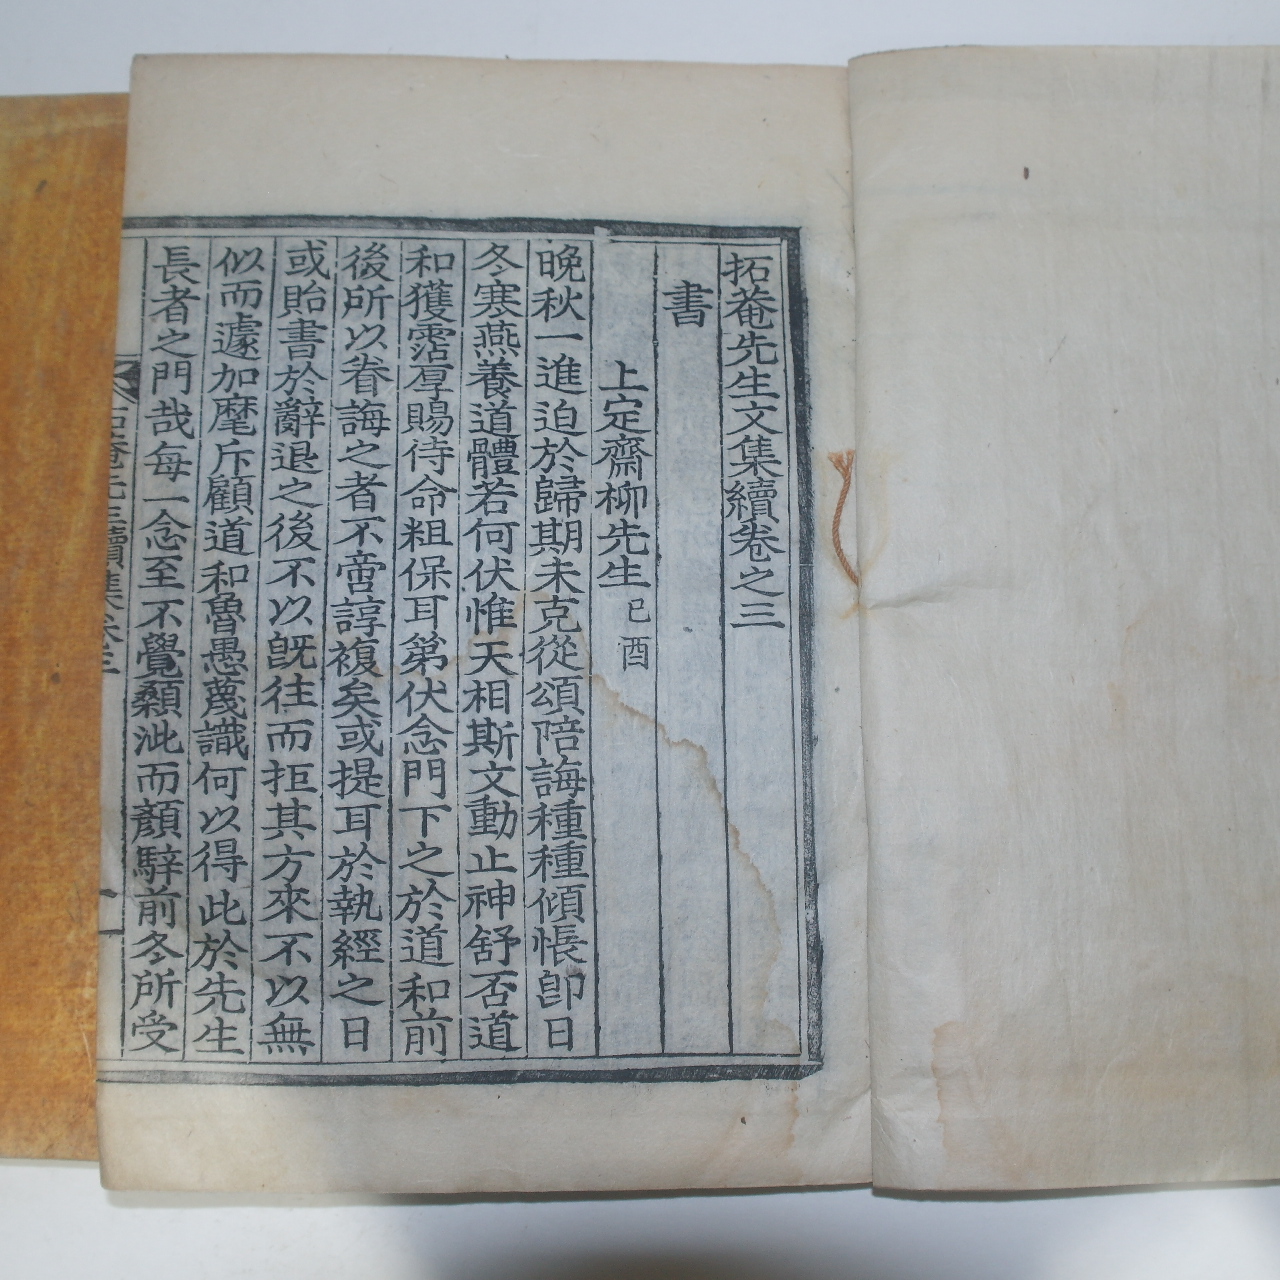 拓菴先生文集續卷之三
書
上定齋柳先生 己酉
晚秋一進迫於歸期未克從頌陪誨種種傾悵卽日
冬寒燕養道體若何伏惟天相斯文動止神舒否道
和獲霑厚賜待命粗保耳第伏念門下之於道和前
後所以眷誨之者不啻諄複矣或提耳於執經之日
或貽書於辭退之後不以旣往而拒其方來不以無
似而遽加麾斥顧道和魯愚蔑識何以得此於先生
長者之門哉每一念至不覺顙泚而顏騂前冬所受